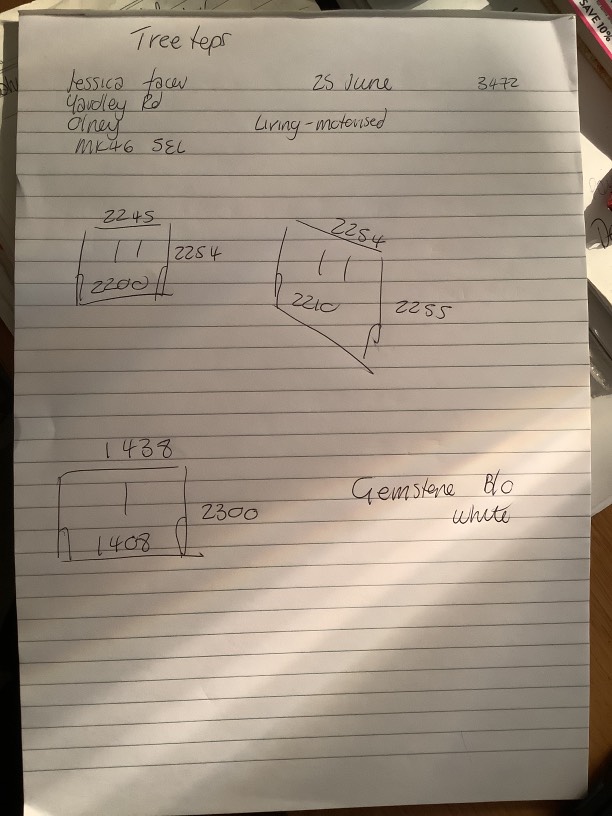 Tree teps
Jessica facer 25 June 3472
Yardley Rd
Olney Living-motorised
MK46 5EL
2245
2254
2200
2254
2210
2255
1438
2300
1408
Gemstone B/O
white
SAVE 10%